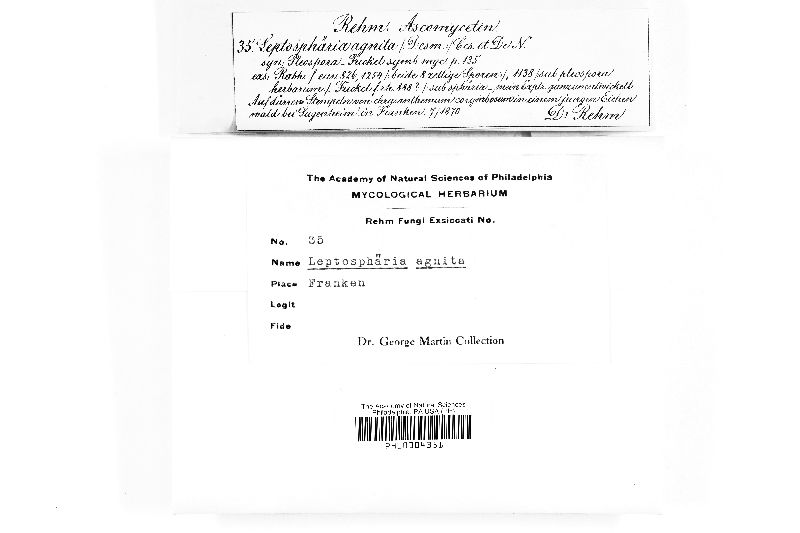 Rehm. Ascomyceten
35. Leptosphäria agnita / Desm. / Ces. et De N.
syn: Pleospora Fuckel symb. myc. p. 135
eas: Rabh. f. eur. 826, 1254 / beide 8 zellige Sporen /, 1138 / sub pleospora
herbarum /. Fuckel f. rh. 888? / sub sphäria – mein Expl. ganz unentwickelt
Auf dürren Stengeln von chrysanthemum corymbosum in einem jungen Eichen
wald bei Sugenheim in Franken. 7/1870 Dr. Rehm
The Academy of Natural Sciences of Philadelphia
MYCOLOGICAL HERBARIUM
Rehm Fungi Exsiccati No.
No. 35
Name Leptosphäria agnita
Place Franken
Legit
Fide
Dr. George Martin Collection
The Academy of Natural Sciences
Philadelphia, PA USA (PH)